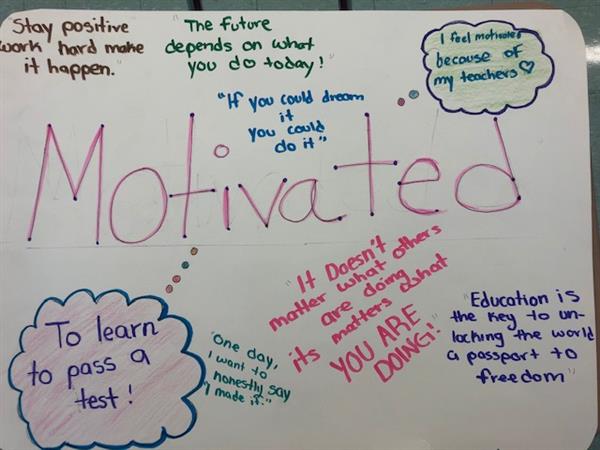 Stay positive
work hard make
it happen."
The future
depends on what
you do today!
I feel motivated
because of
my teachers
"If you could dream
it
you could
do it"
Motivated
To learn
to pass a
test!
"One day,
I want to
honestly say
"I made it."
"It Doesn't
matter what others
are doing
its matters what
YOU ARE
DOING!"
"Education is
the key to un-
locking the world
a passport to
freedom"